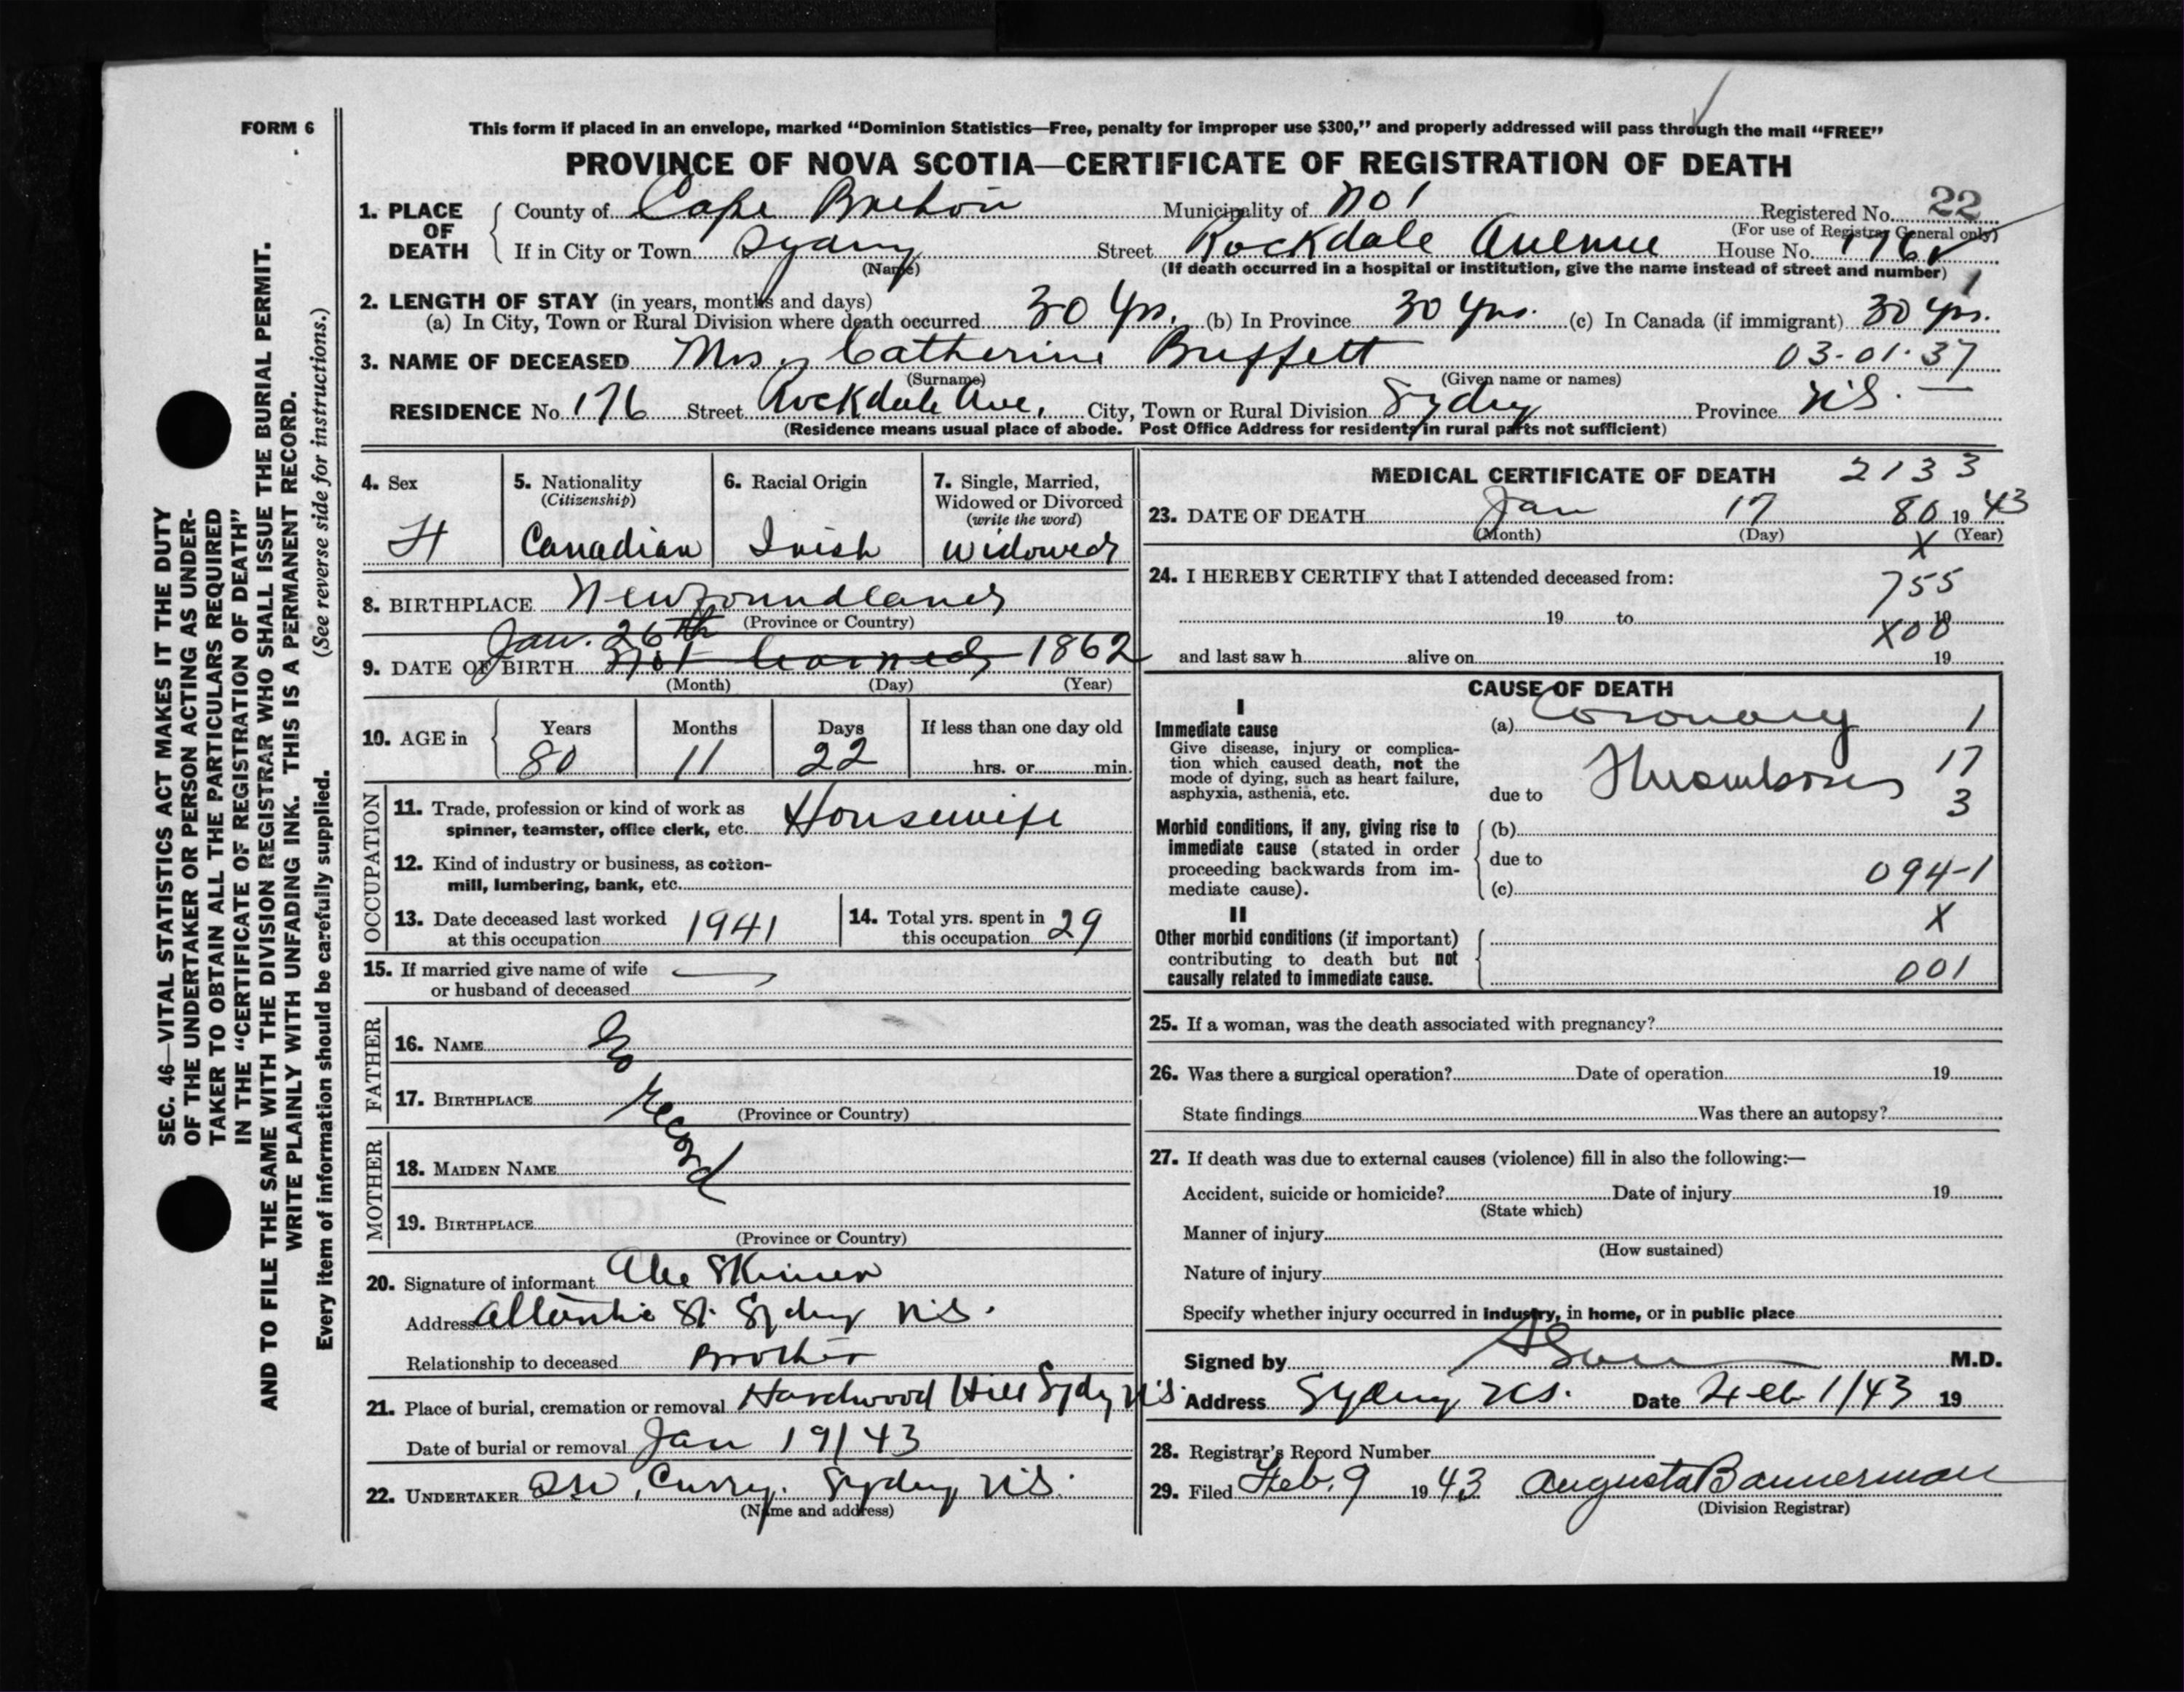 FORM 6
This form if placed in an envelope, marked "Dominion Statistics—Free, penalty for improper use $300," and properly addressed will pass through the mail "FREE"
PROVINCE OF NOVA SCOTIA—CERTIFICATE OF REGISTRATION OF DEATH
1. PLACE OF DEATH
County of Cape Breton Municipality of No 1 Registered No. 22
(For use of Registrar General only)
If in City or Town Sydney Street Rockdale Avenue House No. 176
(Name) (If death occurred in a hospital or institution, give the name instead of street and number) 1
2. LENGTH OF STAY (in years, months and days)
(a) In City, Town or Rural Division where death occurred 30 Yrs. (b) In Province 30 Yrs. (c) In Canada (if immigrant) 30 yrs.
3. NAME OF DECEASED Mrs. Catherine Buffett 03-01-37
(Surname) (Given name or names)
RESIDENCE No. 176 Street Rockdale Ave. City, Town or Rural Division Sydney Province N.S.
(Residence means usual place of abode. Post Office Address for residents in rural parts not sufficient)
4. Sex F
5. Nationality (Citizenship) Canadian
6. Racial Origin Irish
7. Single, Married, Widowed or Divorced (write the word) Widowed
8. BIRTHPLACE Newfoundland
(Province or Country)
Jan. 26th
9. DATE OF BIRTH Not learned 1862
(Month) (Day) (Year)
10. AGE in Years 80 Months 11 Days 22 If less than one day old hrs. or min.
OCCUPATION
11. Trade, profession or kind of work as spinner, teamster, office clerk, etc. Housewife
12. Kind of industry or business, as cotton-mill, lumbering, bank, etc.
13. Date deceased last worked at this occupation 1941
14. Total yrs. spent in this occupation 29
15. If married give name of wife or husband of deceased —
FATHER
16. NAME No
17. BIRTHPLACE record
(Province or Country)
MOTHER
18. MAIDEN NAME
19. BIRTHPLACE
(Province or Country)
20. Signature of informant Abe Skinner
Address Atlantic St. Sydney N.S.
Relationship to deceased Brother
21. Place of burial, cremation or removal Hardwood Hill Sydney N.S.
Date of burial or removal Jan 19/43
22. UNDERTAKER Curry. Sydney N.S.
(Name and address)
MEDICAL CERTIFICATE OF DEATH 2133
23. DATE OF DEATH Jan 17 80 19 43
(Month) (Day) X (Year)
24. I HEREBY CERTIFY that I attended deceased from: 755
19 to 19
X00
and last saw h alive on 19
CAUSE OF DEATH
I
Immediate cause (a) Coronary 1
Give disease, injury or complication which caused death, not the mode of dying, such as heart failure, asphyxia, asthenia, etc.
due to Thrombosis 17
3
Morbid conditions, if any, giving rise to immediate cause (stated in order proceeding backwards from immediate cause).
(b)
due to
(c) 094-1
II X
Other morbid conditions (if important) contributing to death but not causally related to immediate cause. 001
25. If a woman, was the death associated with pregnancy?
26. Was there a surgical operation? Date of operation 19
State findings Was there an autopsy?
27. If death was due to external causes (violence) fill in also the following:—
Accident, suicide or homicide? Date of injury 19
(State which)
Manner of injury
(How sustained)
Nature of injury
Specify whether injury occurred in industry, in home, or in public place
Signed by M.D.
Address Sydney N.S. Date Feb 1/43 19
28. Registrar's Record Number
29. Filed Feb. 9 19 43 Augusta Bannerman
(Division Registrar)
SEC. 46—VITAL STATISTICS ACT MAKES IT THE DUTY
OF THE UNDERTAKER OR PERSON ACTING AS UNDER-
TAKER TO OBTAIN ALL THE PARTICULARS REQUIRED
IN THE "CERTIFICATE OF REGISTRATION OF DEATH"
AND TO FILE THE SAME WITH THE DIVISION REGISTRAR WHO SHALL ISSUE THE BURIAL PERMIT.
WRITE PLAINLY WITH UNFADING INK. THIS IS A PERMANENT RECORD.
Every item of information should be carefully supplied. (See reverse side for instructions.)